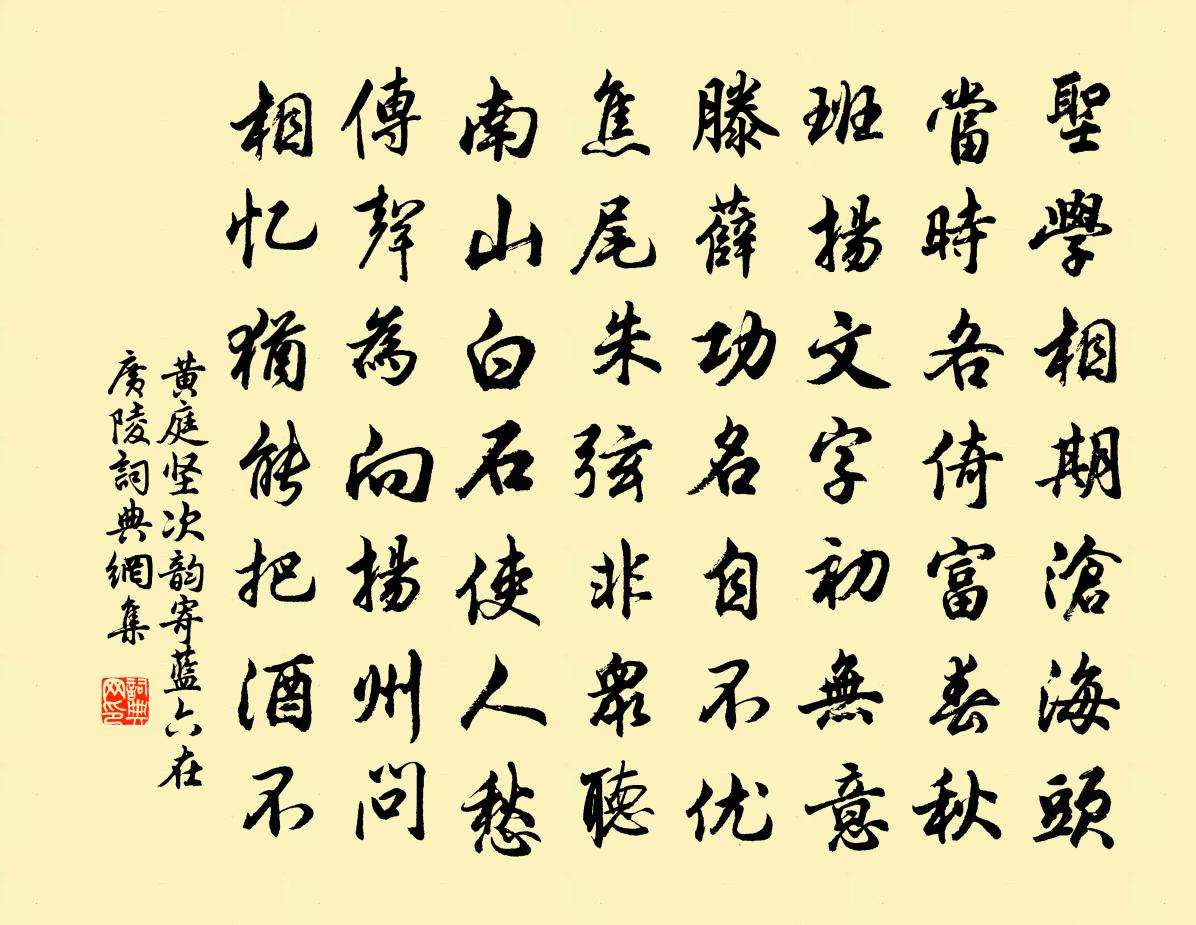 聖學相期滄海頭
當時各倚富春秋
班揚文字初無意
滕薛功名自不优
焦尾朱弦非眾聽
南山白石使人愁
傳聲為向揚州問
相忆猶能把酒不
黄庭坚次韵寄蓝六在
廣陵詞典網集
詞典网印